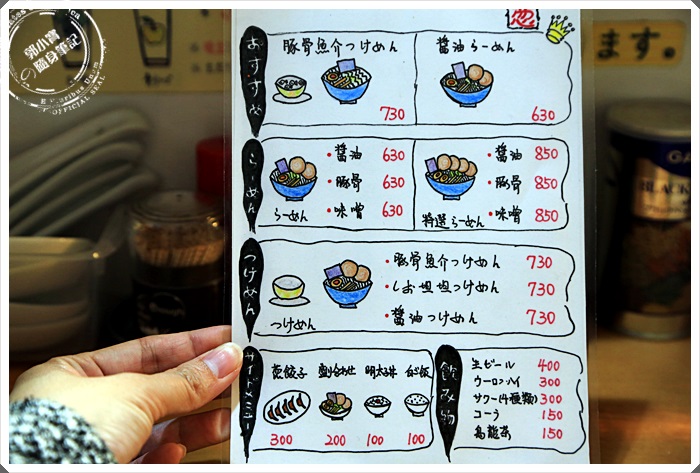 郭小寶
の隨身筆記
OFFICIAL SEAL
ます。
BLACK
おすすめ
豚骨魚介つけめん
730
醤油らーめん
630
らーめん
・醤油 630
・豚骨 630
・味噌 630
らーめん
・醤油 850
・豚骨 850
・味噌 850
特選らーめん
つけめん
・豚骨魚介つけめん 730
・しお坦坦つけめん 730
・醤油つけめん 730
つけめん
サイドメニュー
餃子 300
盛り合わせ 200
明太丼 100
白ご飯 100
飲み物
生ビール 400
ウーロンハイ 300
サワー(4種類) 300
コーラ 150
烏龍茶 150